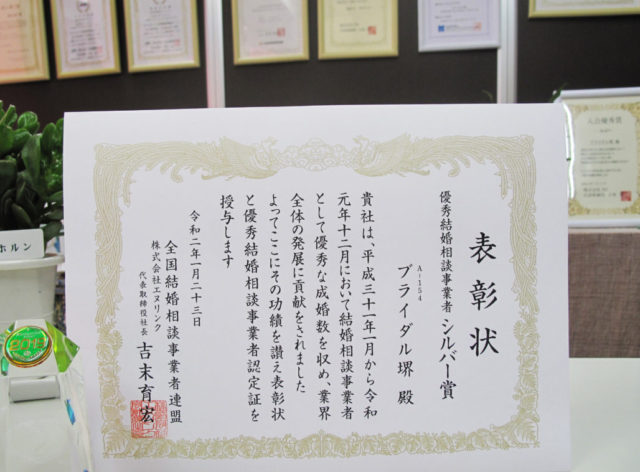 表彰状
優秀結婚相談事業者 シルバー賞
A-1154
ブライダル堺 殿
貴社は、平成三十一年一月から令和
元年十二月において結婚相談事業者
として優秀な成婚数を収め、業界
全体の発展に貢献をされました
よってここにその功績を讃え表彰状
と優秀結婚相談事業者認定証を
授与します
令和二年一月二十三日
全国結婚相談事業者連盟
株式会社エヌリンク
代表取締役社長 吉末育宏
ホルン
入会優秀賞